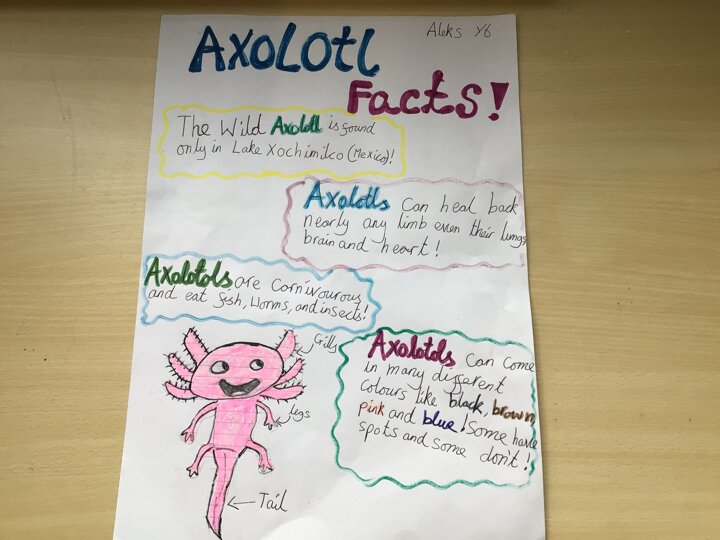 Aleks Y6
Axolotl
Facts!
The Wild Axolotl is found
only in Lake Xochimilco (Mexico)!
Axolotls can heal back
nearly any limb even their lungs
brain and heart!
Axolotols are Cornivourous
and eat fish, worms, and insects!
Gills
legs
Tail
Axolotols can come
in many different
colours like black, brown,
pink and blue! Some have
spots and some don't!